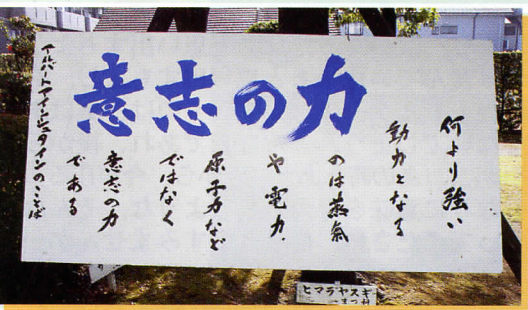 意志の力
何より強い
動力となる
のは蒸氣
や電力、
原子力など
ではなく
意志の力
である
アルバートアインシュタインのことば
ヒマラヤスギ